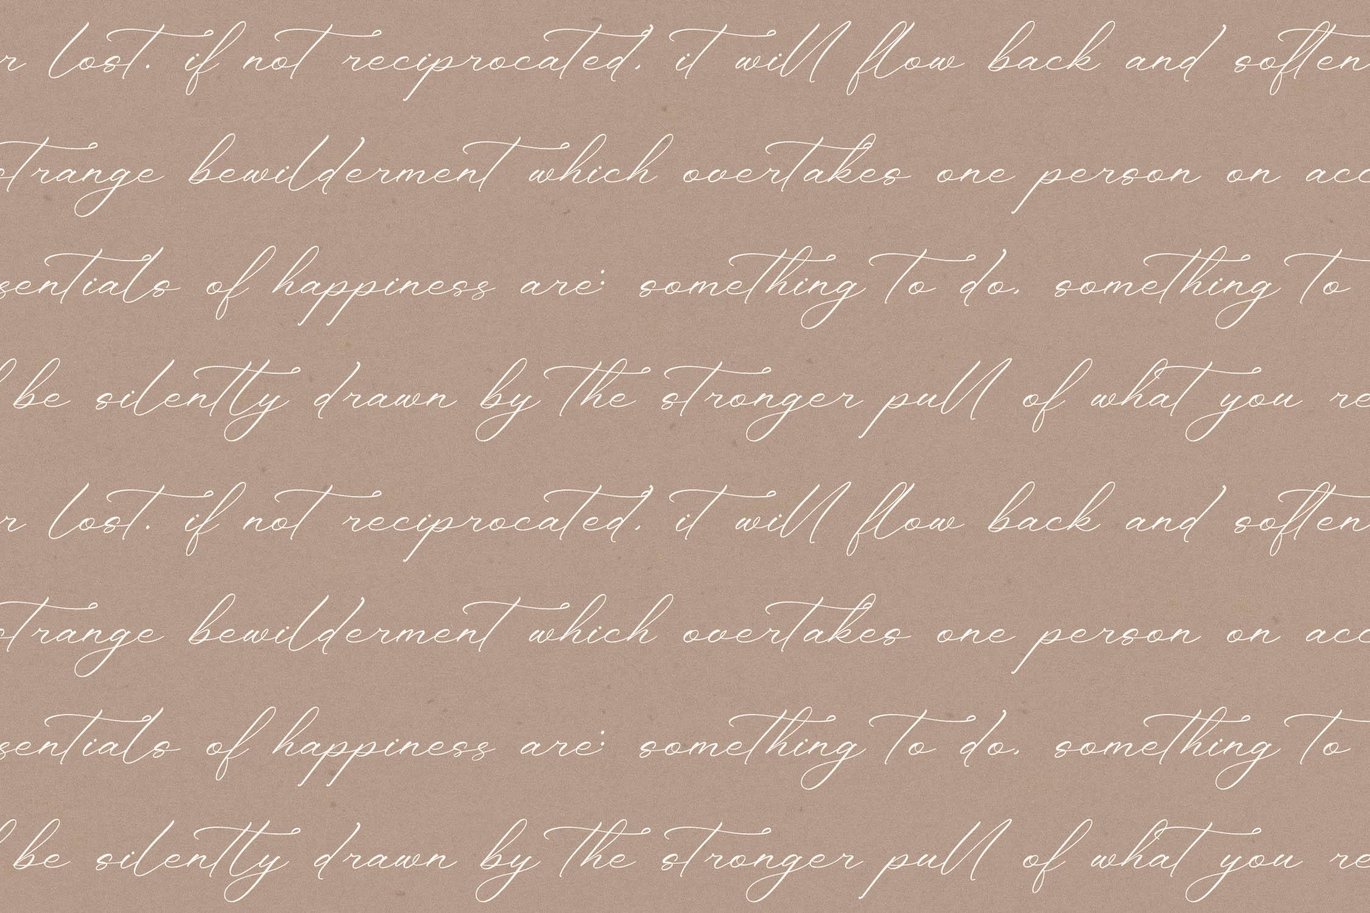 r lost. if not reciprocated, it will flow back and soften
strange bewilderment which overtakes one person on acc
sentials of happiness are: something to do, something to
l be silently drawn by the stronger pull of what you re
r lost. if not reciprocated, it will flow back and soften
strange bewilderment which overtakes one person on acc
sentials of happiness are: something to do, something to
l be silently drawn by the stronger pull of what you re